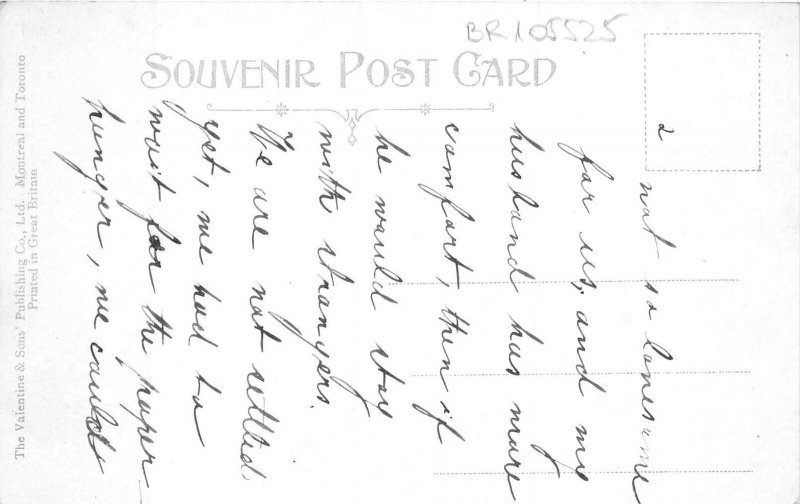 BR105525
SOUVENIR POST CARD
The Valentine & Sons' Publishing Co., Ltd. Montreal and Toronto
Printed in Great Britain
2
not so lonesome
for us, and my
husband has more
comfort, then if
he would stay
with strangers.
We are not settled.
yet, we had to
wait for the paper
hunger, we could